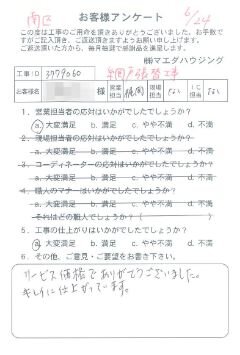 南区
6/24
お客様アンケート
この度は工事のご用命を頂きありがとうございました。お手数で
すがご記入頂き、ご返送頂きますようお願い申し上げます。
ご返送頂いた方から、毎月抽選で感謝品を進呈します。
㈱マエダハウジング
工事ID 3779060 網戸張替工事
お客様名 様 営業担当 桃岡 現場担当 なし IC担当 なし
1. 営業担当者の応対はいかがでしたでしょうか?
a. 大変満足 b. 満足 c. やや不満 d. 不満
2. 現場担当者の応対はいかがでしたでしょうか?
a. 大変満足 b. 満足 c. やや不満 d. 不満
3. コーディネーターの応対はいかがでしたでしょうか?
a. 大変満足 b. 満足 c. やや不満 d. 不満
4. 職人のマナーはいかがでしたでしょうか?
a. 大変満足 b. 満足 c. やや不満 d. 不満
それはどの職人でしょうか?( )
5. 工事の仕上がりはいかがでしたでしょうか?
a. 大変満足 b. 満足 c. やや不満 d. 不満
6. その他、ご意見・ご要望をお書き下さい。
サービス価格でありがとうございました。
キレイに仕上がっています。